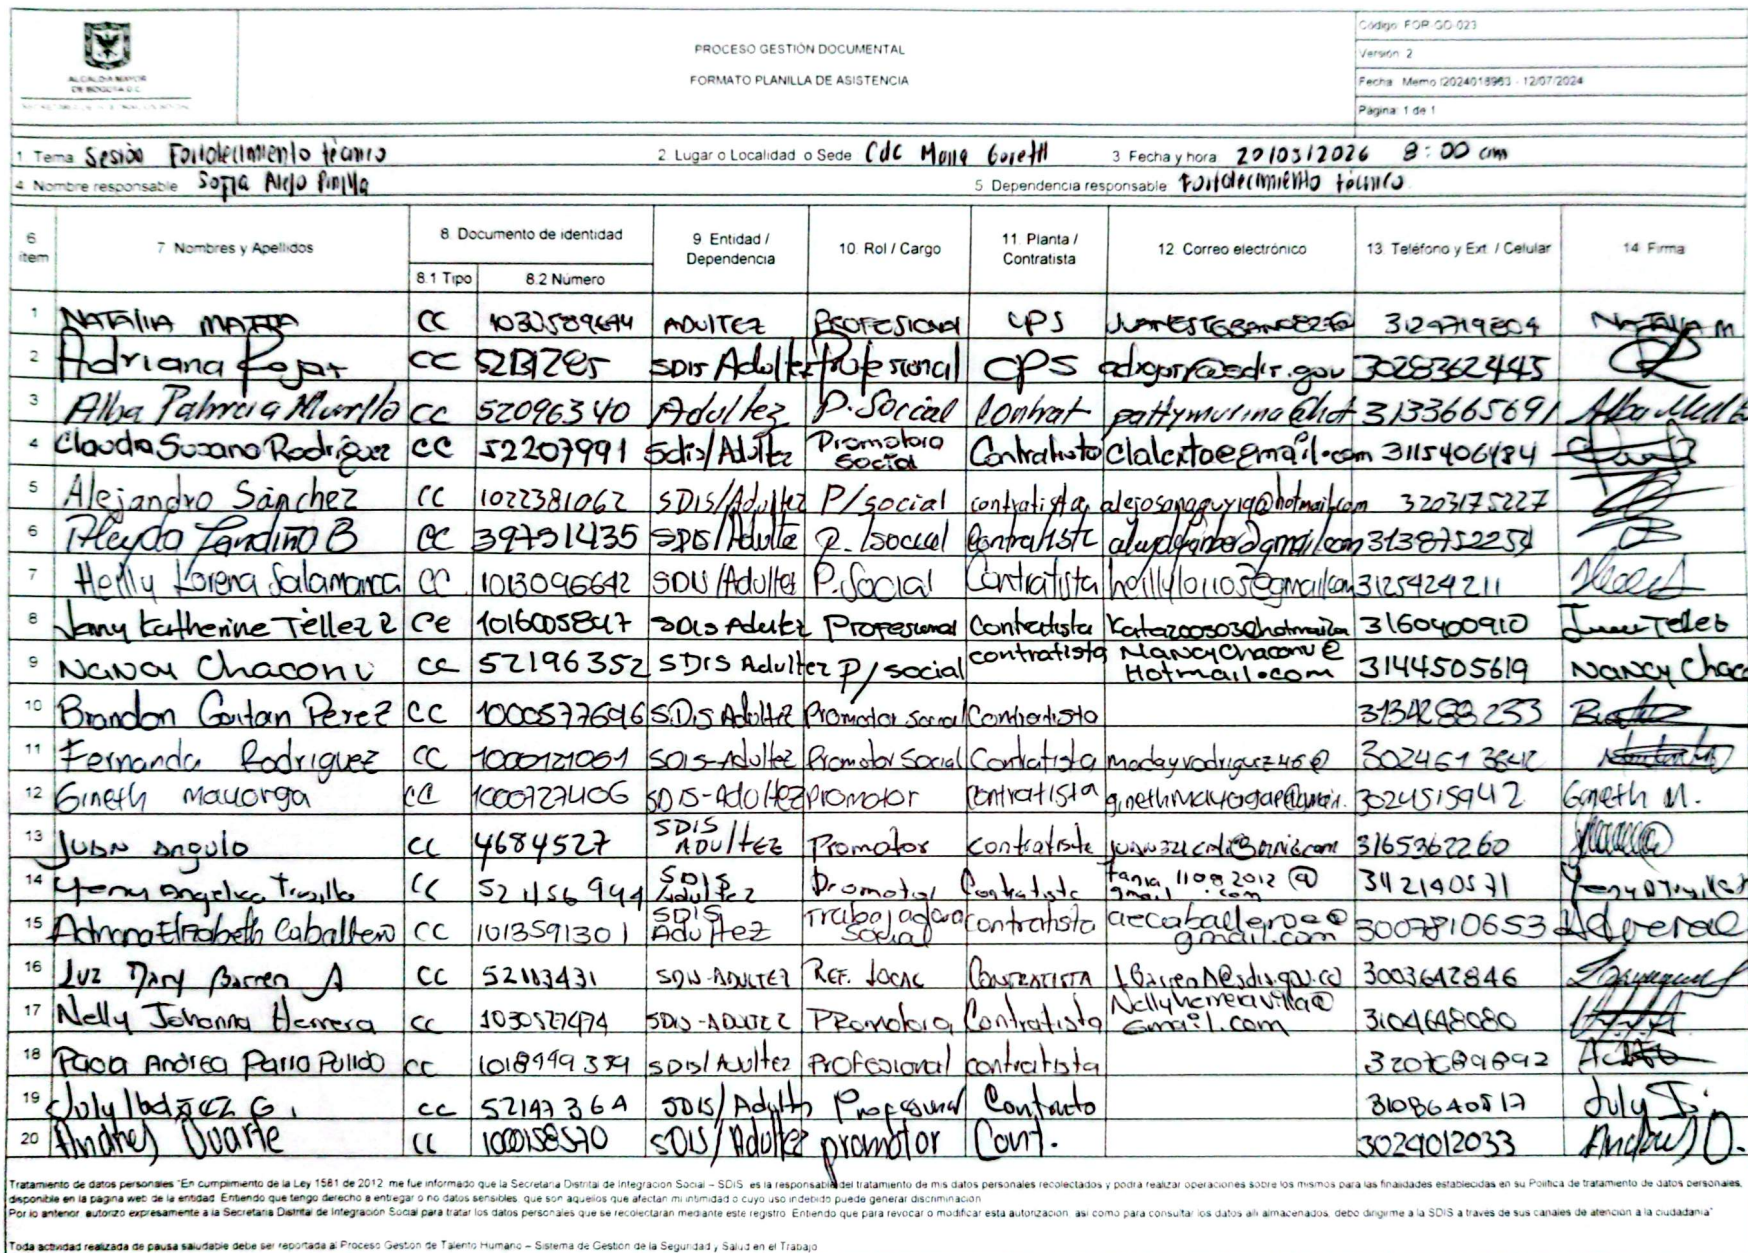 ALCALDIA MAYOR
DE BOGOTA D.C.
PROCESO GESTIÓN DOCUMENTAL
FORMATO PLANILLA DE ASISTENCIA
Código: FOR-GD-023
Versión: 2
Fecha: Memo I2024018963 - 12/07/2024
Página: 1 de 1
1 Tema Sesión Fortolecimiento técnico 2 Lugar o Localidad o Sede Cdc Maria Goretti 3 Fecha y hora 20/03/2026 8:00 am
4 Nombre responsable Sofia Alejo Pinilla 5 Dependencia responsable Fortolecimiento técnico
6 item 7 Nombres y Apellidos 8. Documento de identidad 8.1 Tipo 8.2 Número 9 Entidad / Dependencia 10. Rol / Cargo 11. Planta / Contratista 12. Correo electrónico 13. Teléfono y Ext. / Celular 14. Firma
1 NATALIA CC ADULTEZ PROFESIONAL CPS 3124719804 NATALIA M
2 Adriana Rojas CC SDIS Adultez Profesional CPS 3028362445
3 Alba Patricia Murillo CC 52096340 Adultez P. Social Contrat pattymurina@hot 3133665691
4 Claudia Susana Rodriguez CC 52207991 Sdis/Adultez Promotora Social Contratista 3115406484
5 Alejandro Sánchez CC 1022381062 SDIS/Adultez P/social contratista 3203175227
6 CC 39731435 SDIS/Adulte P. /social Contratist
7 Heilly Lorena Salamanca CC 1013096642 SDIS/Adultez P. Social Contratista 3125424211
8 Jenny Katherine Téllez R CC SDIS Adultez Profesional Contratista 3160400910
9 Nancy Chacon V CC 52196352 SDIS Adultez P/social contratista NancyChaconv@Hotmail.com 3144505619 Nancy Chaco
10 Brandon Gaitan Perez CC 1000577696 SDIS Adultez Promotor Social Contratista 3134288233
11 Fernanda Rodriguez CC SDIS-Adultez Promotor Social Contratista
12 Gineth Mayorga CC 1000727406 SDIS-Adultez Promotor Contratista 3024515942 Gineth M.
13 Juan Angulo CC 4684527 SDIS Adultez Promotor contratista 3165362260
14 Yeny Angelica Trujillo CC SDIS Adultez Promotor Contratista tania11082012@gmail.com 342140571
15 Adriana Elizabeth Caballero CC 1013591301 SDIS Adultez Trabajadora Social contratista aecaballeroe@gmail.com 3007810653
16 Luz Mary Barren A CC 52113431 SDIS-ADULTEZ REF. LOCAL CONTRATISTA 3003642846
17 Nelly Johanna Herrera CC 1030527474 SDIS-ADULTEZ PRomotora Contratista Nellyherreravilla@Gmail.com 3104648080
18 Andrea Pulido CC SDIS/Adultez Profesional contratista
19 July CC 52147364 SDIS/Adultez Profesional Contrato 3108640517 July I.
20 Andres Duarte CC 1000158570 SDIS/Adultez promotor Cont. 3024012033 Andres D.
Tratamiento de datos personales "En cumplimiento de la Ley 1581 de 2012, me fue informado que la Secretaria Distrital de Integracion Social – SDIS es la responsable del tratamiento de mis datos personales recolectados y podra realizar operaciones sobre los mismos para las finalidades establecidas en su Politica de tratamiento de datos personales,
disponible en la pagina web de la entidad. Entiendo que tengo derecho a entregar o no datos sensibles, que son aquellos que afectan mi intimidad o cuyo uso indebido puede generar discriminacion
Por lo anterior, autorizo expresamente a la Secretaria Distrital de Integración Social para tratar los datos personales que se recolectaran mediante este registro. Entiendo que para revocar o modificar esta autorizacion, asi como para consultar los datos alli almacenados, debo dirigirme a la SDIS a traves de sus canales de atencion a la ciudadania"
Toda actividad realizada de pausa saludable debe ser reportada al Proceso Gestion de Talento Humano – Sistema de Gestion de la Seguridad y Salud en el Trabajo